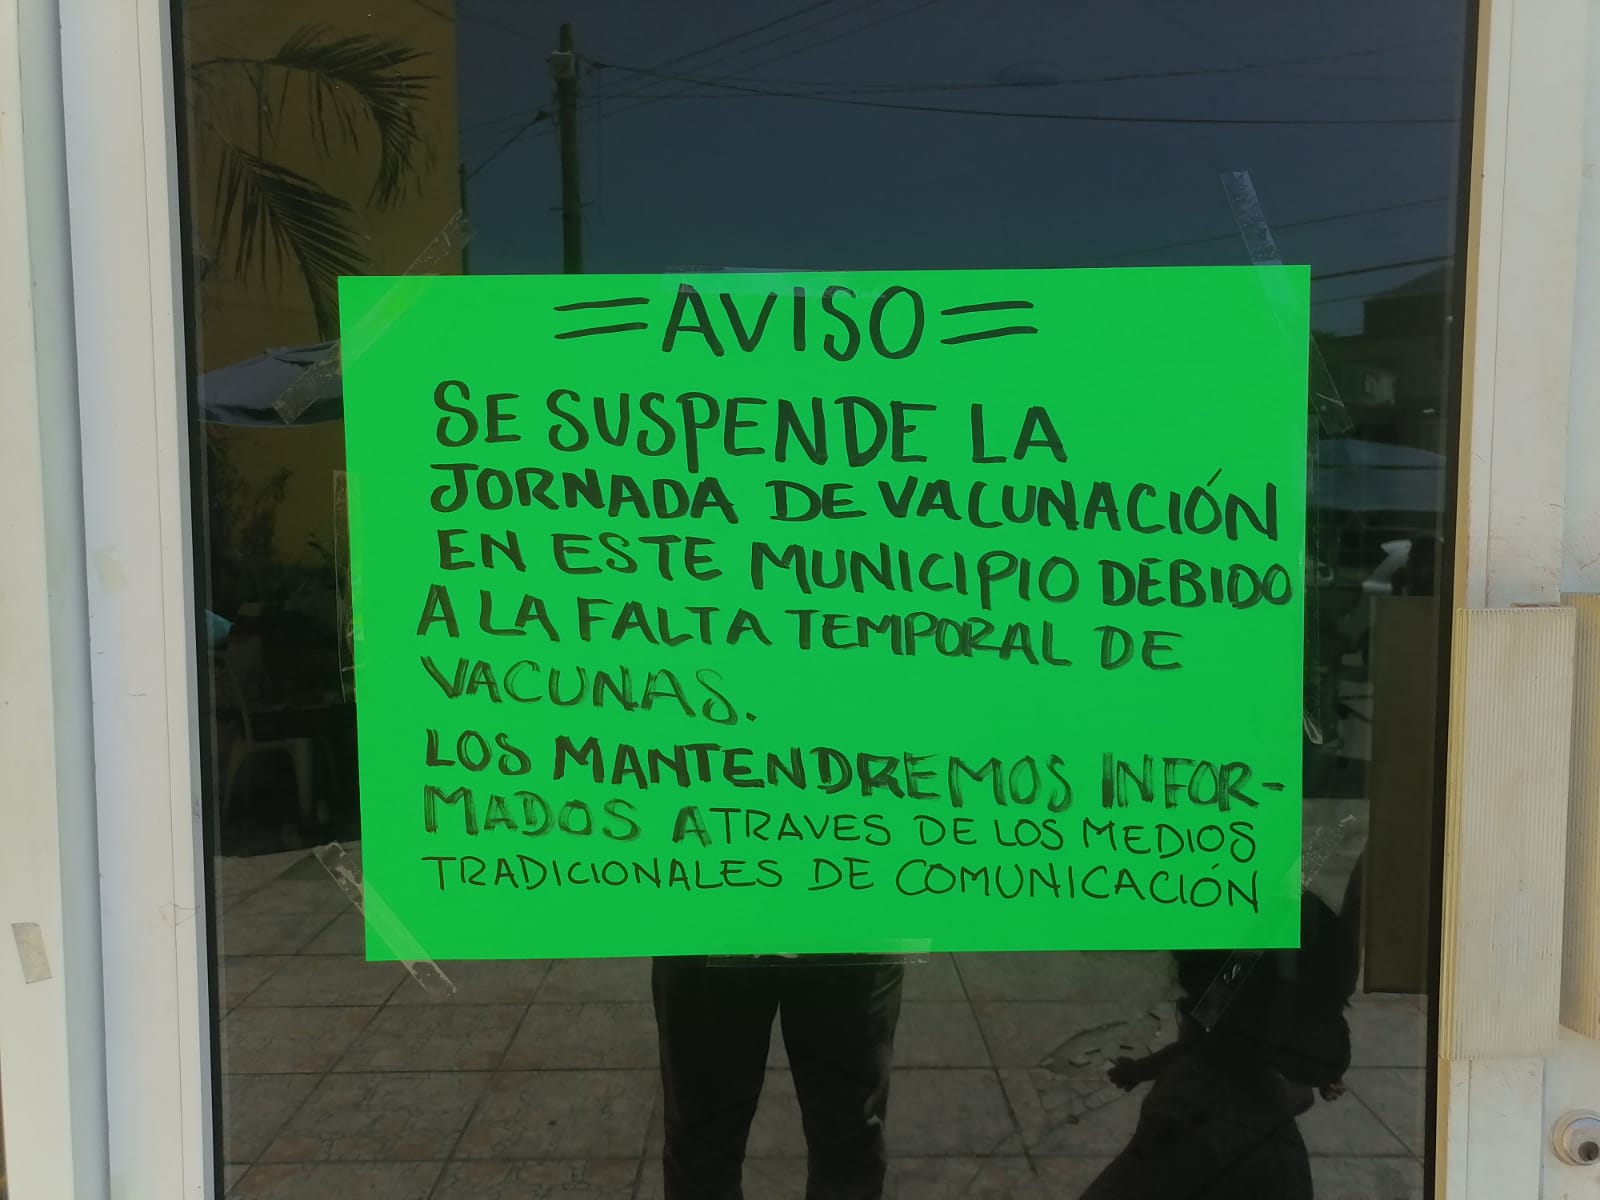 =AVISO=
SE SUSPENDE LA
JORNADA DE VACUNACIÓN
EN ESTE MUNICIPIO DEBIDO
A LA FALTA TEMPORAL DE
VACUNAS.
LOS MANTENDREMOS INFOR-
MADOS ATRAVES DE LOS MEDIOS
TRADICIONALES DE COMUNICACIÓN